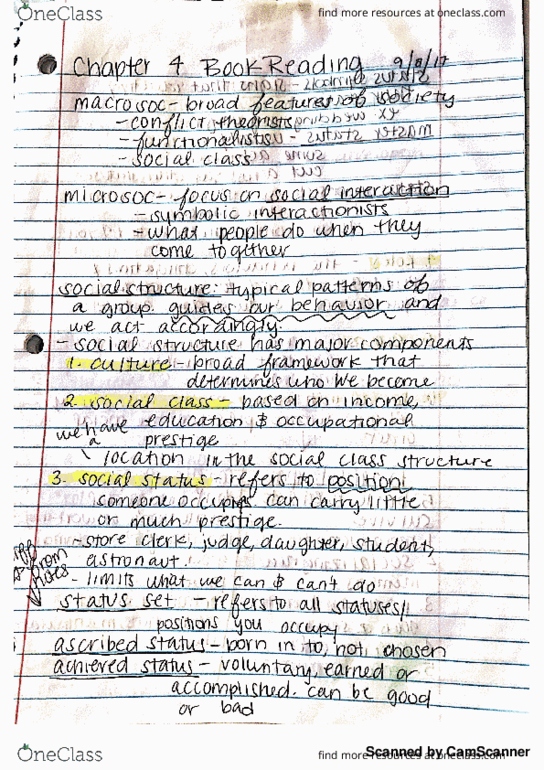 OneClass
find more resources at oneclass.com
Chapter 4 Book-Reading 9/8/17
macrosoc - broad features of society
- conflict theorists
- functionalists
- social class
microsoc - focus on social interaction
- symbolic interactionists
- what people do when they
come together
social structure: typical patterns of
a group. guides our behavior and
we act accordingly.
- social structure has major components
1. culture - broad framework that
determines who we become
2. social class - based on income,
education & occupational
prestige
we have a
location in the social class structure
3. social status - refers to position
someone occupies can carry little
or much prestige.
- store clerk, judge, daughter, student,
astronaut.
from notes
- limits what we can & can't do
status set - refers to all statuses/
positions you occupy
ascribed status - born in to, not chosen
achieved status - voluntary, earned or
accomplished. can be good
or bad
OneClass
find more resources at oneclass.com
Scanned by CamScanner